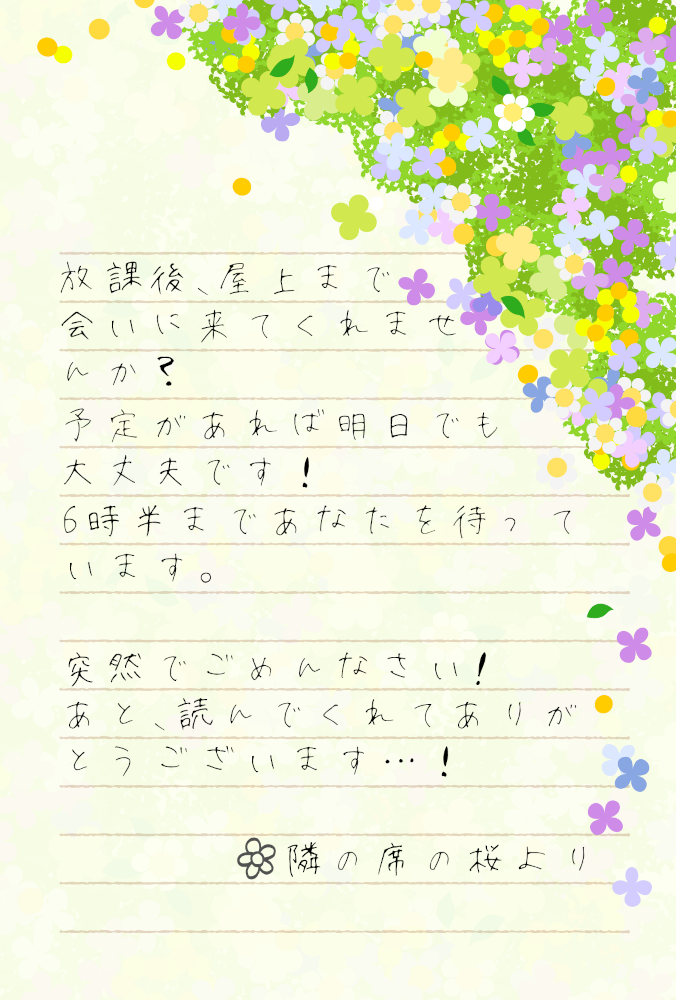 放課後、屋上まで
会いに来てくれませ
んか?
予定があれば明日でも
大丈夫です!
6時半まであなたを待って
います。
突然でごめんなさい!
あと、読んでくれてありが
とうございます…!
隣の席の桜より